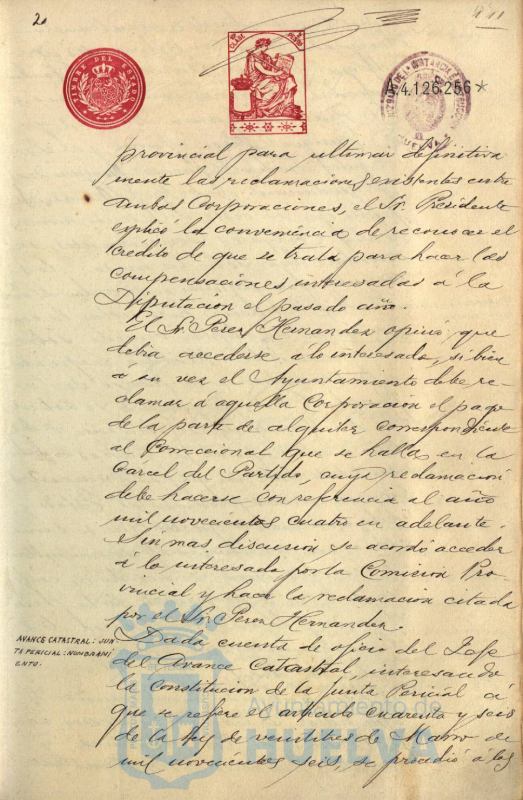 2
11
TIMBRE DEL ESTADO
A4.126.256*
HUELVA
provincial para ultimar definitiva
mente las reclamaciones existentes entre
ambas Corporaciones, el Sr. Presidente
explicó la conveniencia de reconocer el
crédito de que se trata para hacer las
compensaciones interesadas á la
Diputacion el pasado año.
El Sr. Perez Hernandez opinó que
debia accederse á lo interesado, si bien
á su vez el Ayuntamiento debe re-
clamar á aquella Corporacion el pago
de la parte de alquiler correspondiente
al Correccional que se halla en la
Carcel del Partido, cuya reclamacion
debe hacerse con referencia al año
mil novecientos cuatro en adelante.
Sin mas discusion se acordó acceder
á lo interesado por la Comision Pro-
vincial y hacer la reclamacion citada
por el Sr. Perez Hernandez.
AVANCE CATASTRAL: JUN
TA PERICIAL: NOMBRAMI
ENTO.
Dada cuenta de oficio del Jefe
del Avance Catastral, interesando
la Constitucion de la Junta Pericial á
que se refiere el artículo cuarenta y seis
de la ley de veintitres de Marzo de
mil novecientos seis, se procedió á los
Ayuntamiento de
HUELVA